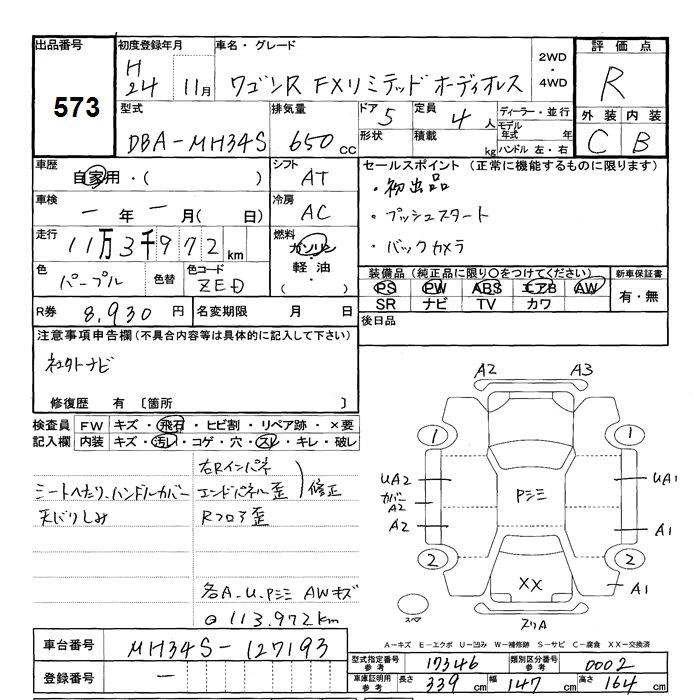 出品番号
573
初度登録年月
H
24 11月
車名・グレード
ワゴンR FXリミテッド ホーディオレス
2WD
・
4WD
評価点
R
型式
DBA-MH34S
排気量
650 cc
ドア 5
形状
定員 4 人
積載 kg
ディーラー・並行
モデル
年式 年
ハンドル 左・右
外装 内装
C B
車歴
自家用・( )
シフト
AT
車検
一 年 一 月( 日)
冷房
AC
走行
11万3千972 km
燃料
ガソリン
・
軽油
・
( )
色
パープル
色替
色コード
ZED
R券 8,930 円
名変期限 月 日
セールスポイント (正常に機能するものに限ります)
・初出品
・プッシュスタート
・バックカメラ
装備品 (純正品に限り○をつけてください)
PS PW ABS エアB AW
SR ナビ TV カワ
新車保証書
有・無
後日品
注意事項申告欄 (不具合内容等は具体的に記入して下さい)
社外ナビ
修復歴 有 〔箇所 〕
検査員
記入欄
FW キズ・飛石・ヒビ割・リペア跡・×要
内装 キズ・汚レ・コゲ・穴・スレ・キレ・破レ
シートへたり、ハンドルカバー
天バリしみ
右Rインパネ
エンドパネル歪
修正
Rフロア歪
各A.U.Pシミ AWキズ
@113.972km
A2 A3
1 1
UA2
カバー
A2
A2
Pシミ
UA1
A1
2 2
A1
XX
スペア
スリA
A-キズ E-エクボ U-凹み W-補修跡 S-サビ C-腐食 XX-交換済
車台番号
MH34S-127193
登録番号
一
型式指定番号
参考
17346
類別区分番号
参考
0002
車庫証明用
参考
長さ 339 cm 幅 147 cm 高さ 164 cm